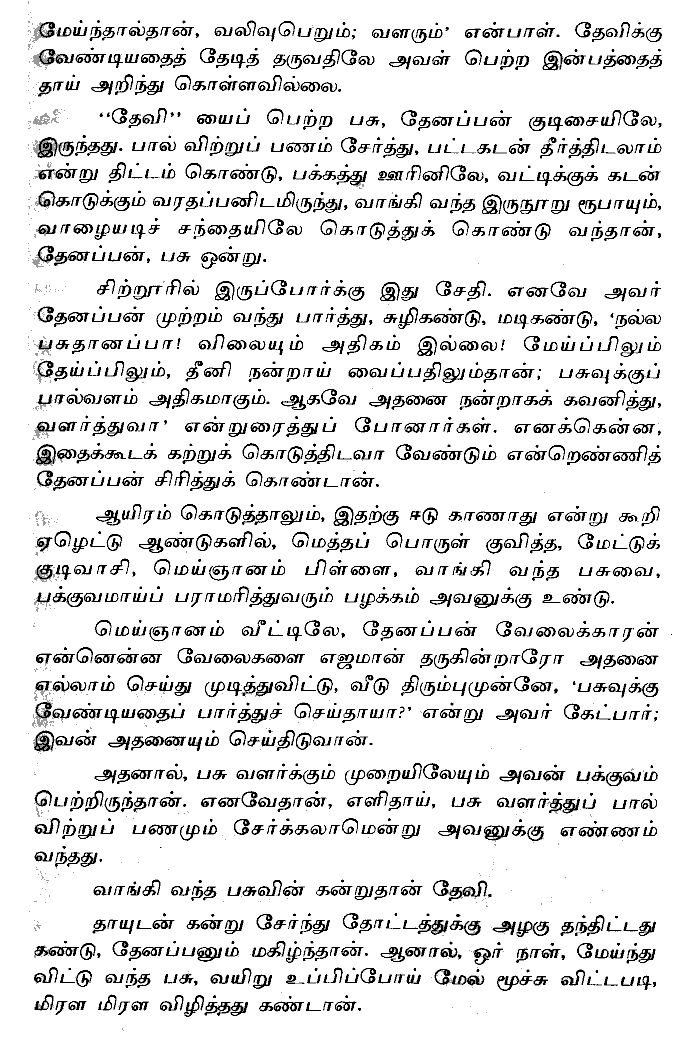 மேய்ந்தால்தான், வலிவுபெறும்; வளரும்' என்பாள். தேவிக்கு
வேண்டியதைத் தேடித் தருவதிலே அவள் பெற்ற இன்பத்தைத்
தாய் அறிந்து கொள்ளவில்லை.
"தேவி" யைப் பெற்ற பசு, தேனப்பன் குடிசையிலே,
இருந்தது. பால் விற்றுப் பணம் சேர்த்து, பட்டகடன் தீர்த்திடலாம்
என்று திட்டம் கொண்டு, பக்கத்து ஊரினிலே, வட்டிக்குக் கடன்
கொடுக்கும் வரதப்பனிடமிருந்து, வாங்கி வந்த இருநூறு ரூபாயும்,
வாழையடிச் சந்தையிலே கொடுத்துக் கொண்டு வந்தான்,
தேனப்பன், பசு ஒன்று.
சிற்றூரில் இருப்போர்க்கு இது சேதி. எனவே அவர்
தேனப்பன் முற்றம் வந்து பார்த்து, சுழிகண்டு, மடிகண்டு, 'நல்ல
பசுதானப்பா! விலையும் அதிகம் இல்லை! மேய்ப்பிலும்
தேய்ப்பிலும், தீனி நன்றாய் வைப்பதிலும்தான்; பசுவுக்குப்
பால்வளம் அதிகமாகும். ஆகவே அதனை நன்றாகக் கவனித்து,
வளர்த்துவா' என்றுரைத்துப் போனார்கள். எனக்கென்ன,
இதைக்கூடக் கற்றுக் கொடுத்திடவா வேண்டும் என்றெண்ணித்
தேனப்பன் சிரித்துக் கொண்டான்.
ஆயிரம் கொடுத்தாலும், இதற்கு ஈடு காணாது என்று கூறி
ஏழெட்டு ஆண்டுகளில், மெத்தப் பொருள் குவித்த, மேட்டுக்
குடிவாசி, மெய்ஞானம் பிள்ளை, வாங்கி வந்த பசுவை,
பக்குவமாய்ப் பராமரித்துவரும் பழக்கம் அவனுக்கு உண்டு.
மெய்ஞானம் வீட்டிலே, தேனப்பன் வேலைக்காரன்
என்னென்ன வேலைகளை எஜமான் தருகின்றாரோ அதனை
எல்லாம் செய்து முடித்துவிட்டு, வீடு திரும்புமுன்னே, 'பசுவுக்கு
வேண்டியதைப் பார்த்துச் செய்தாயா?' என்று அவர் கேட்பார்;
இவன் அதனையும் செய்திடுவான்.
அதனால், பசு வளர்க்கும் முறையிலேயும் அவன் பக்குவம்
பெற்றிருந்தான். எனவேதான், எளிதாய், பசு வளர்த்துப் பால்
விற்றுப் பணமும் சேர்க்கலாமென்று அவனுக்கு எண்ணம்
வந்தது.
வாங்கி வந்த பசுவின் கன்றுதான் தேவி.
தாயுடன் கன்று சேர்ந்து தோட்டத்துக்கு அழகு தந்திட்டது
கண்டு, தேனப்பனும் மகிழ்ந்தான். ஆனால், ஓர் நாள், மேய்ந்து
விட்டு வந்த பசு, வயிறு உப்பிப்போய் மேல் மூச்சு விட்டபடி,
மிரள மிரள விழித்தது கண்டான்.